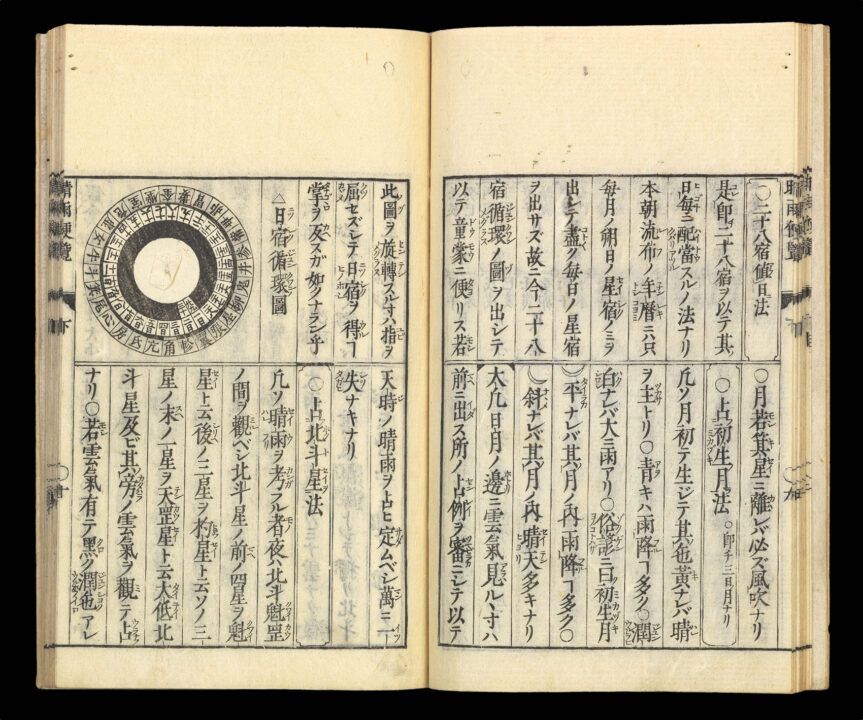 〇二十八宿値日法
是即二十八宿ヲ以テ其
日毎ニ配當スルノ法ナリ
本朝流布ノ年暦ニハ只
毎月ノ朔日ノ星宿ノミヲ
出シテ盡ク毎日ノ星宿
ヲ出サズ故ニ今二十八
宿循環ノ圖ヲ出シテ
以テ童蒙ニ便リス若
此圖ヲ旋轉スルヿハ指ヲ
屈セズシテ日宿ヲ得ヿ
掌ヲ及スガ如クナラン乎
△日宿循環圖
〇月若箕星ニ離レバ必ズ風吹ナリ
〇占初生月法 〇即チ三日月ナリ
凡ソ月初テ生ジテ其色黄ナレバ晴
ヲ主トリ〇青キハ雨降ヿ多ク〇潤
白ナレバ大ニ雨アリ〇俗諺ニ曰初生月
平ナレバ其月ノ内雨降ヿ多ク〇
斜ナレバ其月ノ内晴天多キナリ
大凡日月ノ邊ニ雲氣見ルヽ寸ハ
前ニ出ス所ノ占例ヲ審ニシテ以テ
天時ノ晴雨ヲ占ヒ定ムベシ萬ニ一
失ナキナリ
〇占北斗星法
凡ソ晴雨ヲ考フル者夜ハ北斗魁罡
ノ間ヲ觀ベシ北斗星ノ前ノ四星ヲ魁
星ト云後ノ三星ヲ杓星ト云ソノ三
星ノ末ノ一星ヲ天罡星ト云大低北
斗星及ビ其旁ノ雲氣ヲ觀テ占
ナリ〇若雲氣有テ黒ク潤色アレ
晴雨便覧 下